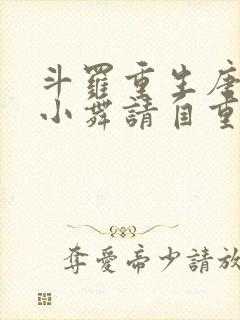 斗羅重生唐
小舞請自重
奪愛帝少請放